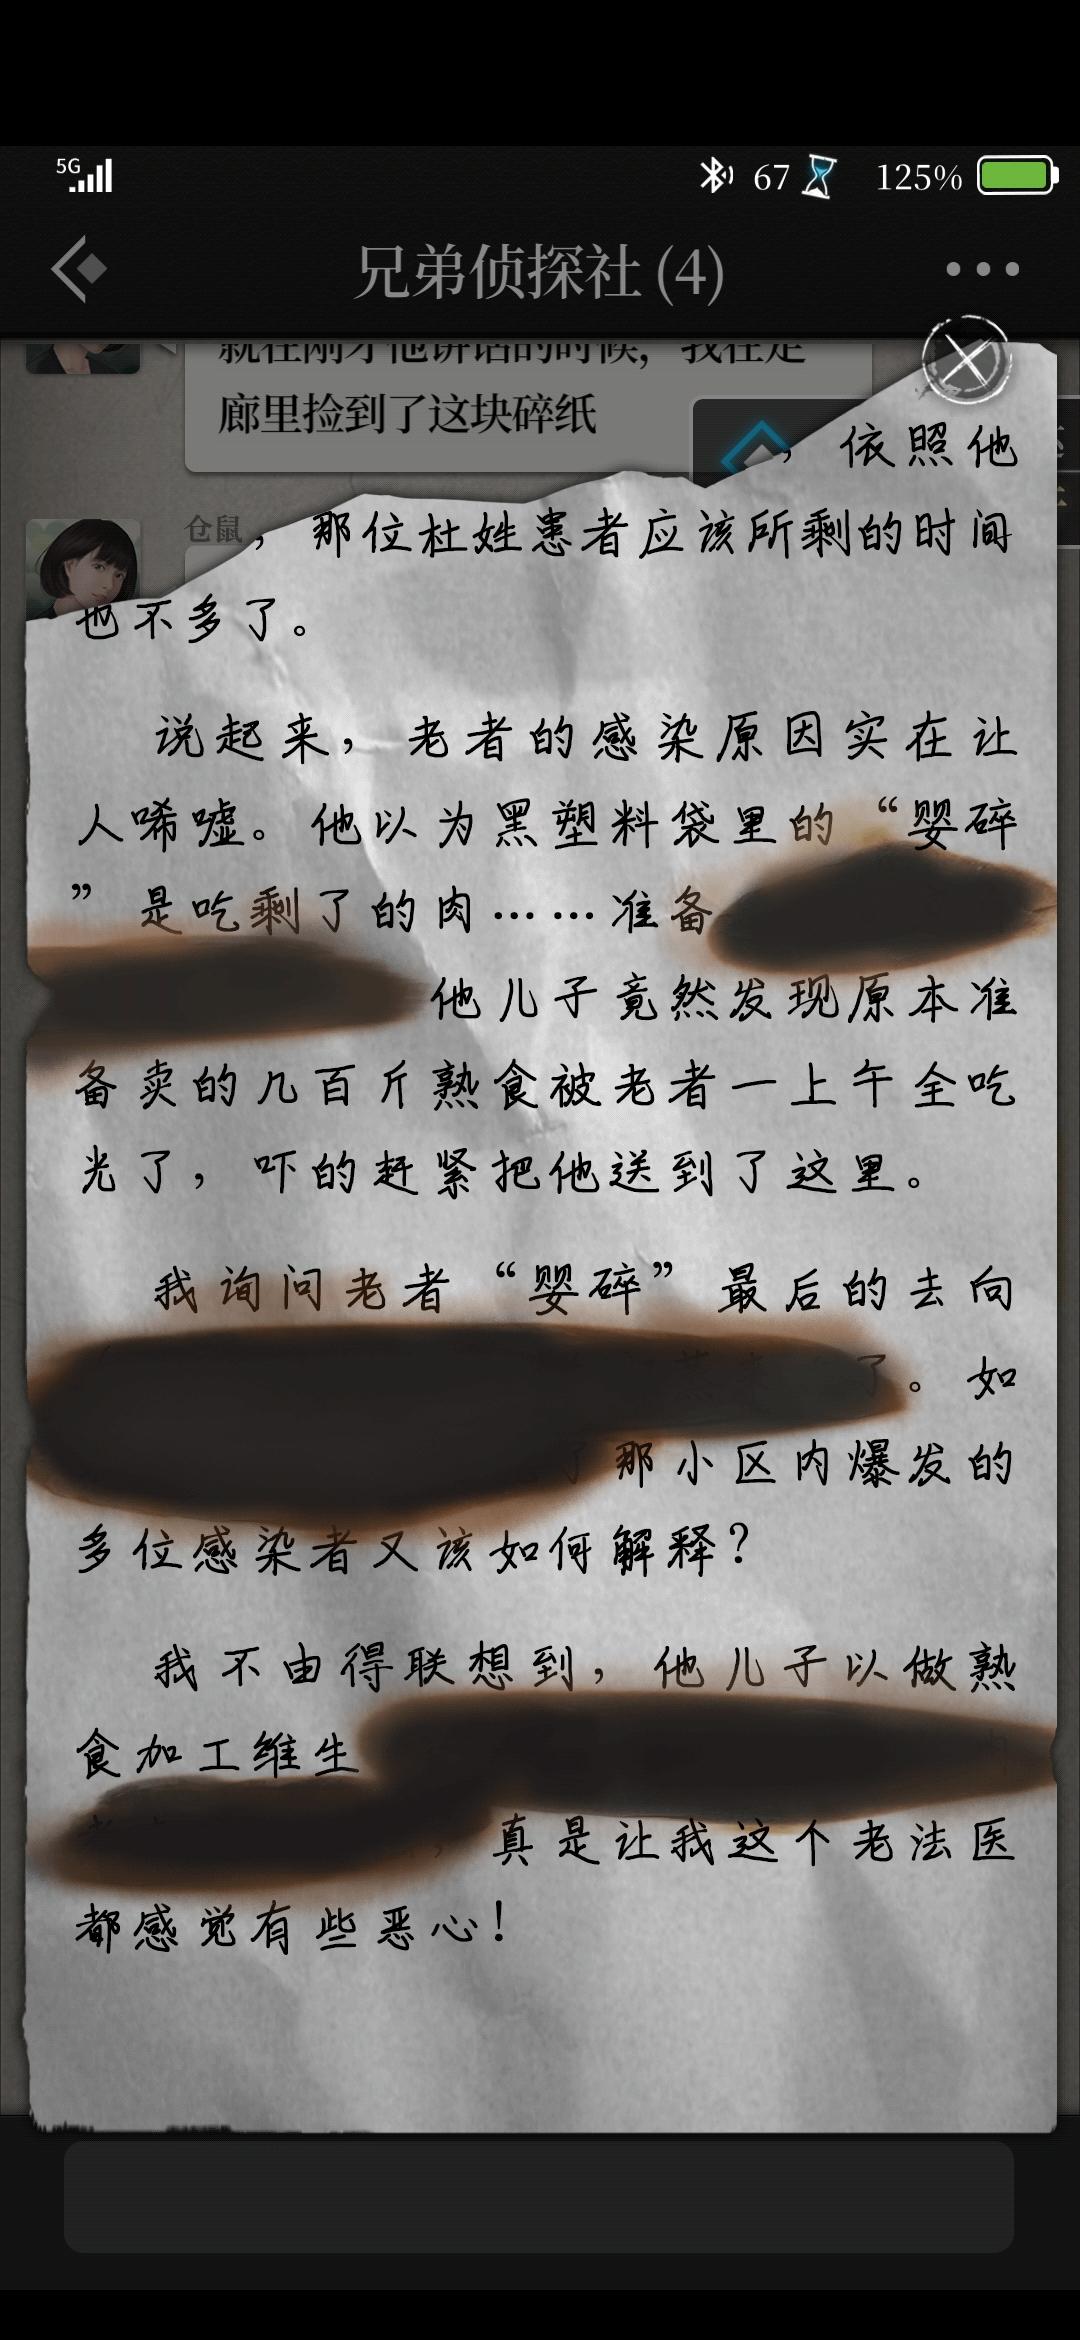 5G 67 125%
兄弟侦探社(4)
就在刚才他讲话的时候，我在走
廊里捡到了这块碎纸
仓鼠
，依照他
，那位杜姓患者应该所剩的时间
也不多了。
说起来，老者的感染原因实在让
人唏嘘。他以为黑塑料袋里的“婴碎
”是吃剩了的肉……准备
他儿子竟然发现原本准
备卖的几百斤熟食被老者一上午全吃
光了，吓的赶紧把他送到了这里。
我询问老者“婴碎”最后的去向
了。如
了那小区内爆发的
多位感染者又该如何解释？
我不由得联想到，他儿子以做熟
食加工维生
，真是让我这个老法医
都感觉有些恶心！